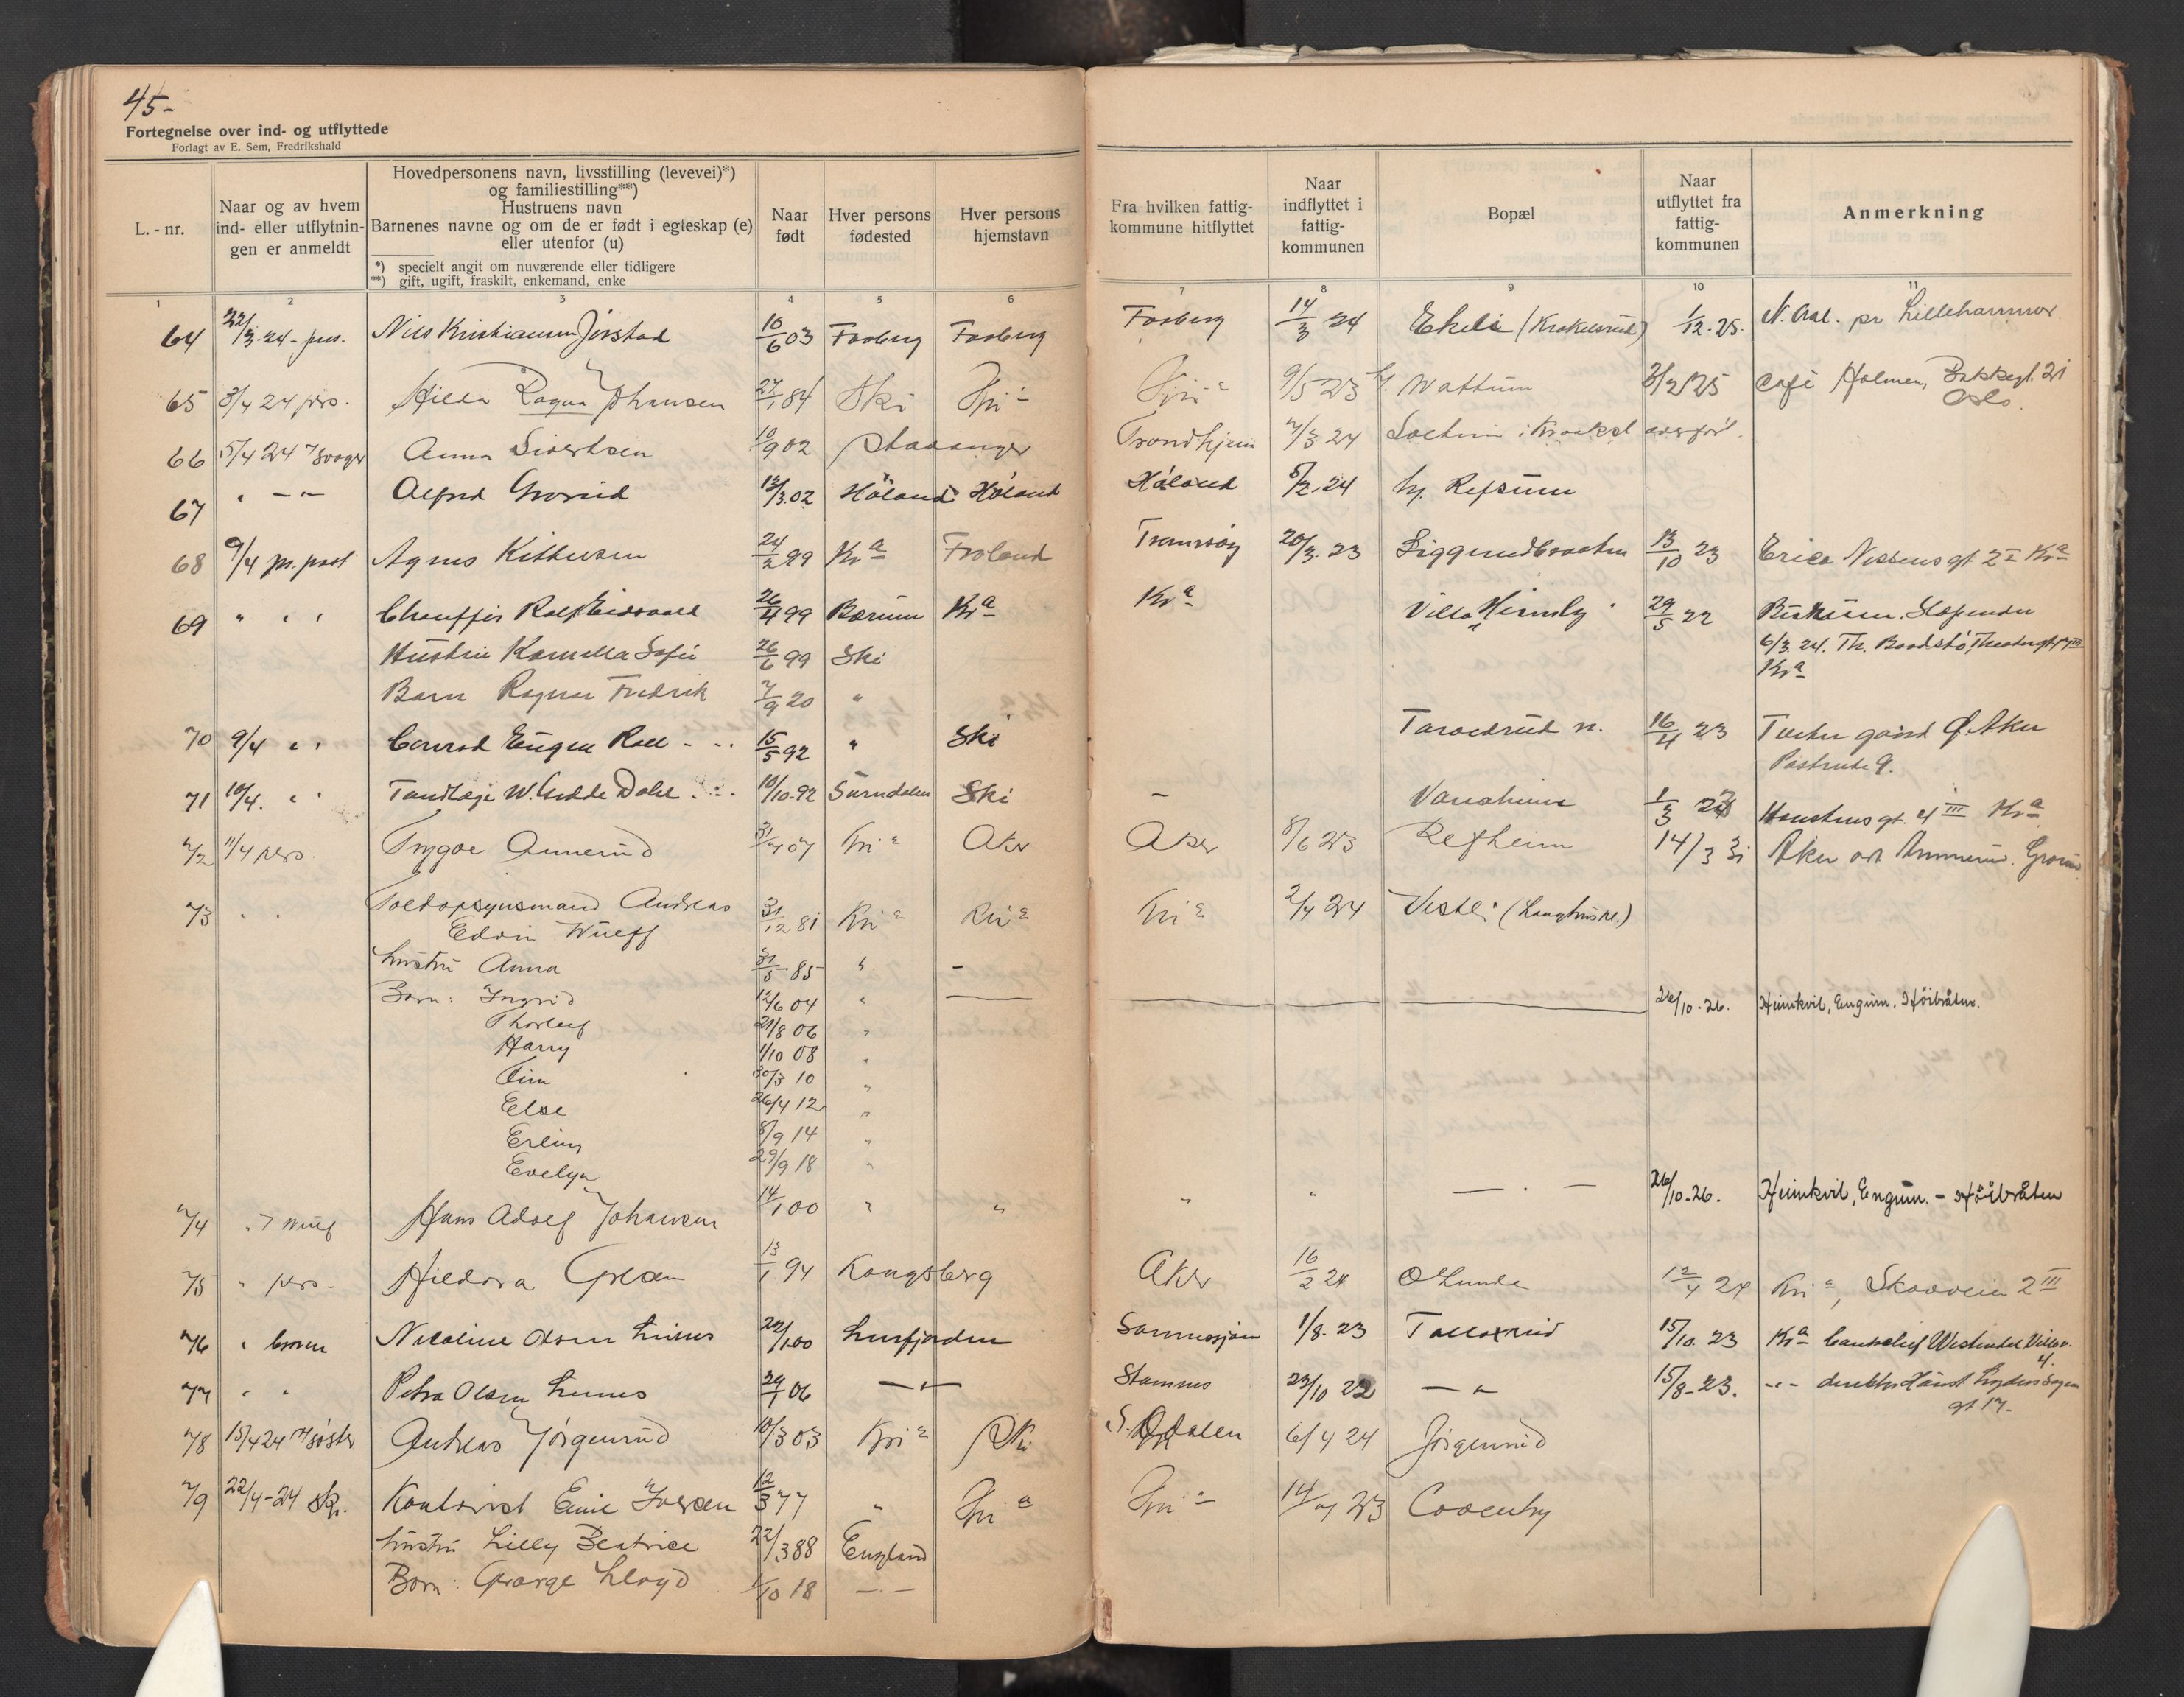 45-
Fortegnelse over ind- og utflyttede
Forlagt av E. Sem, Fredrikshald
L. - nr.
Naar og av hvem ind- eller utflytnin- gen er anmeldt
Hovedpersonens navn, livsstilling (levevei)*)
og familiestilling**)
Hustruens navn
Barnenes navne og om de er født i egteskap (e)
eller utenfor (u)
*) specielt angit om nuværende eller tidligere
**) gift, ugift, fraskilt, enkemand, enke
Naar født
Hver persons fødested
Hver persons hjemstavn
Fra hvilken fattig- kommune hitflyttet
Naar indflyttet i fattig- kommunen
Bopæl
Naar utflyttet fra fattig- kommunen
Anmerkning
1 2 3 4 5 6 7 8 9 10 11
64 22/3-24 - pers. Nils Kristiansen Jörstad 16/6 03 Faaberg Faaberg Faaberg 14/3 24 Ekeli (Krokelsrud) 1/12-25. N. Aal. pr Lillehammer
65 3/4 24 pers. Hilda Ragna Johansen 27/1 84 Ski Kri a Kri a 9/5 23 Wattum 3/2 25 Café Holmen, Bakkegt. 21
Oslo.
66 5/4 24 Anna Sivertsen 10/9 02 Stavanger Trondhjem 7/3 24
67 " - " - Alfred Grorud 12/3.02 Höland Höland Höland 5/2.24 hj. Refsum
68 9/4 pr. post Agnes Kittelsen 24/2 99 Kr a Froland Tromsøy 20/3. 23 13/10 23 Nissens gt 2 I Kr a
69 " " " Chauffør Ralf Eidsvold 26/4 99 Bærum Kr a Kr a Villa Heimly 29/5 22 Slependen
Hustru Kamilla Sofie 26/6 99 Ski 6/3 24. Th.
Kr a
Barn Ragnar Fredrik 7/9 20 "
70 9/4 " " Conrad Eugen Roll 15/5 92 " Ski Taraldrud n. 16/4 23 Tveten gaard Ø. Aker
Postrute 9.
71 10/4. " " Tandlæge W. Dahl 10/10-92 Surndalen Ski - 1/3 24 gt. 4 III Kr a
72 11/4 pers. Trygve Ammerud 31/7 07 Kri a Aker Aker 8/6 23 Refheim 14/3 31 Aker adr Ammerud. Grorud
73 " " Toldopsynsmand Andreas
Edvin Wulff 31/12 81 Kri a Kri a Kri a 2/4 24 Vestli (Langhus st.)
hustru Anna 31/5 85 " -
Barn: Ingrid 12/6 04 " 26/10-26. Heimkvil, Engum. Høibråten.
Thorleif 21/8 06 "
Harry 1/10 08 "
30/3 10 "
Else 26/4 12 "
Erling 8/9 14 "
Evelyn 29/9 18 "
74 " Wulf Hans Adolf Johansen 14/1 00 " " " " - " - 26/10-26. Heimkvil, Engum. - Høibråten
75 " pers. Hildora Olsen 13/1 94 Kongsberg Aker 16/2 24 O Lunde 12/4 24 Kri a, Skovveien 2 III
76 " Nicoline Olsen 22/1 00 1/8. 23 Tallaksrud 15/10. 23 Kr a
4.
77 " " Petra Olsen 29/1 06 - " - Stamnes 23/10 22 - " - 15/8-23. - " -
gt 17.
78 15/4 24 søster Andreas Jörgensrud 10/3 03 Kri a Ski S. Odalen 6/4 24 Jörgensrud
79 22/4-24 Kontorist Emil Iversen 12/3 77 " Kri a Kri a 14/7 23 Coventry
hustru Lilly Beatrice 22/3 88 England
Barn: George Lloyd 1/10 18 - " -